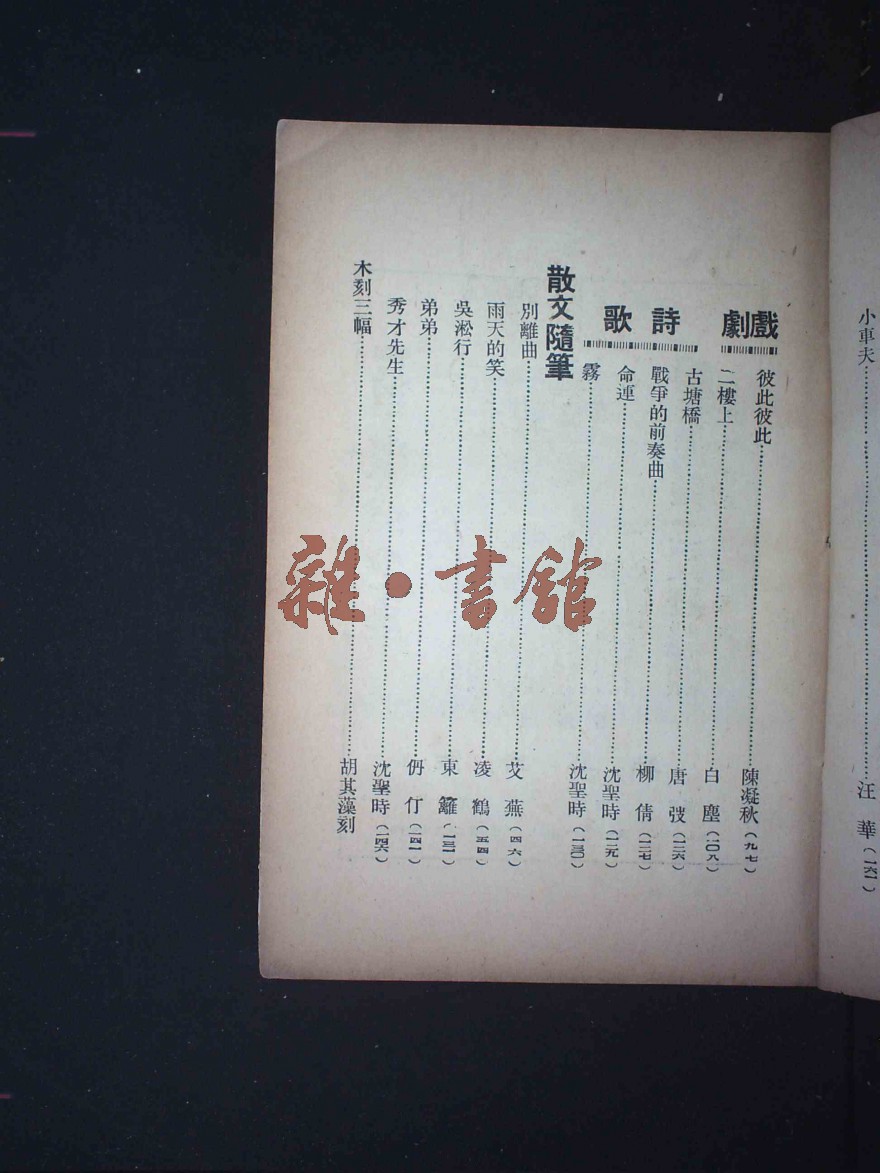 小車夫……汪華(一六一)
戲劇
彼此彼此……陳凝秋(九七)
二樓上……白塵(一〇九)
詩歌
古塘橋……唐弢(一二六)
戰爭的前奏曲……柳倩(一二七)
命連……沈聖時(一二九)
霧……沈聖時(一三〇)
散文隨筆
別離曲……艾蕪(四六)
雨天的笑……凌鶴(五四)
吳淞行……東籬(一三一)
弟弟……伃仃(一四一)
秀才先生……沈聖時(一四六)
木刻三幅……胡其藻刻
雜·書館